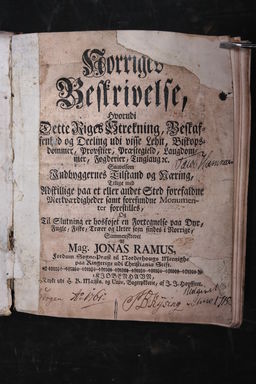 Norriges
Beskrivelse,
Hvorudi
Dette Riges Strekning, Beskaf-
fenhed og Deeling udi visse Lehn, Biskops-
dommer, Provstier, Præstegield, Laugdom-
mer, Fogderier, Tinglaug ꝛc.
Saavelsom
Indbyggernes Tilstand og Næring,
Tillige med
Adskillige paa et eller andet Sted forefaldne
Merkværdigheder samt forefundne Monumen-
ter forestilles,
Og
Til Slutning er hosføjet en Fortegnelse paa Dyr,
Fugle, Fiske, Træer og Urter som findes i Norrige,
Sammenskrevet
Af
Mag. JONAS RAMUS,
Fordum Sogne-Præst til Norderhougs Menighed
paa Ringerige udi Christiania Stift.
KIØBENHAVN,
Trykt udi H. K. Majts. og Univ. Bogtrykkerie, af J. J. Höpffner.